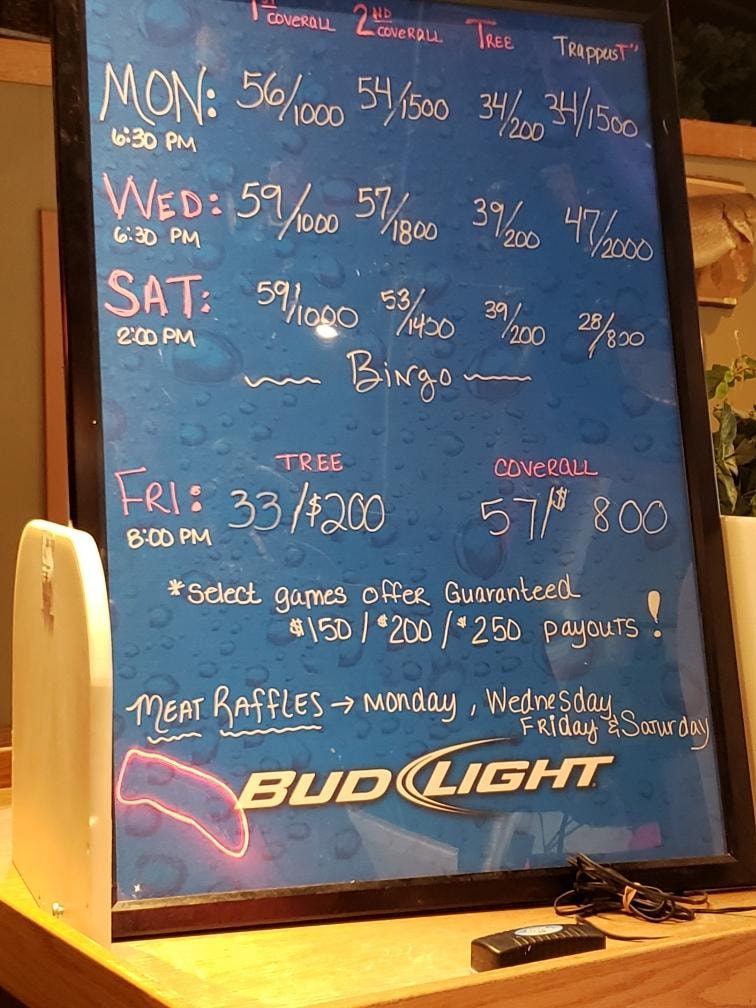 1ST COVERALL 2ND COVERALL TREE TRAPPEIST"
MON: 56/1000 54/1500 34/200 34/1500
6:30 PM
WED: 59/1000 57/1800 39/200 47/2000
6:30 PM
SAT: 59/1000 53/1400 39/200 28/800
2:00 PM
Bingo
TREE COVERALL
FRI: 33/$200 57/$800
8:00 PM
*Select games offer Guaranteed
$150/$200/$250 payouts!
MEAT RAFFLES → Monday, Wednesday,
Friday & Saturday
BUD LIGHT